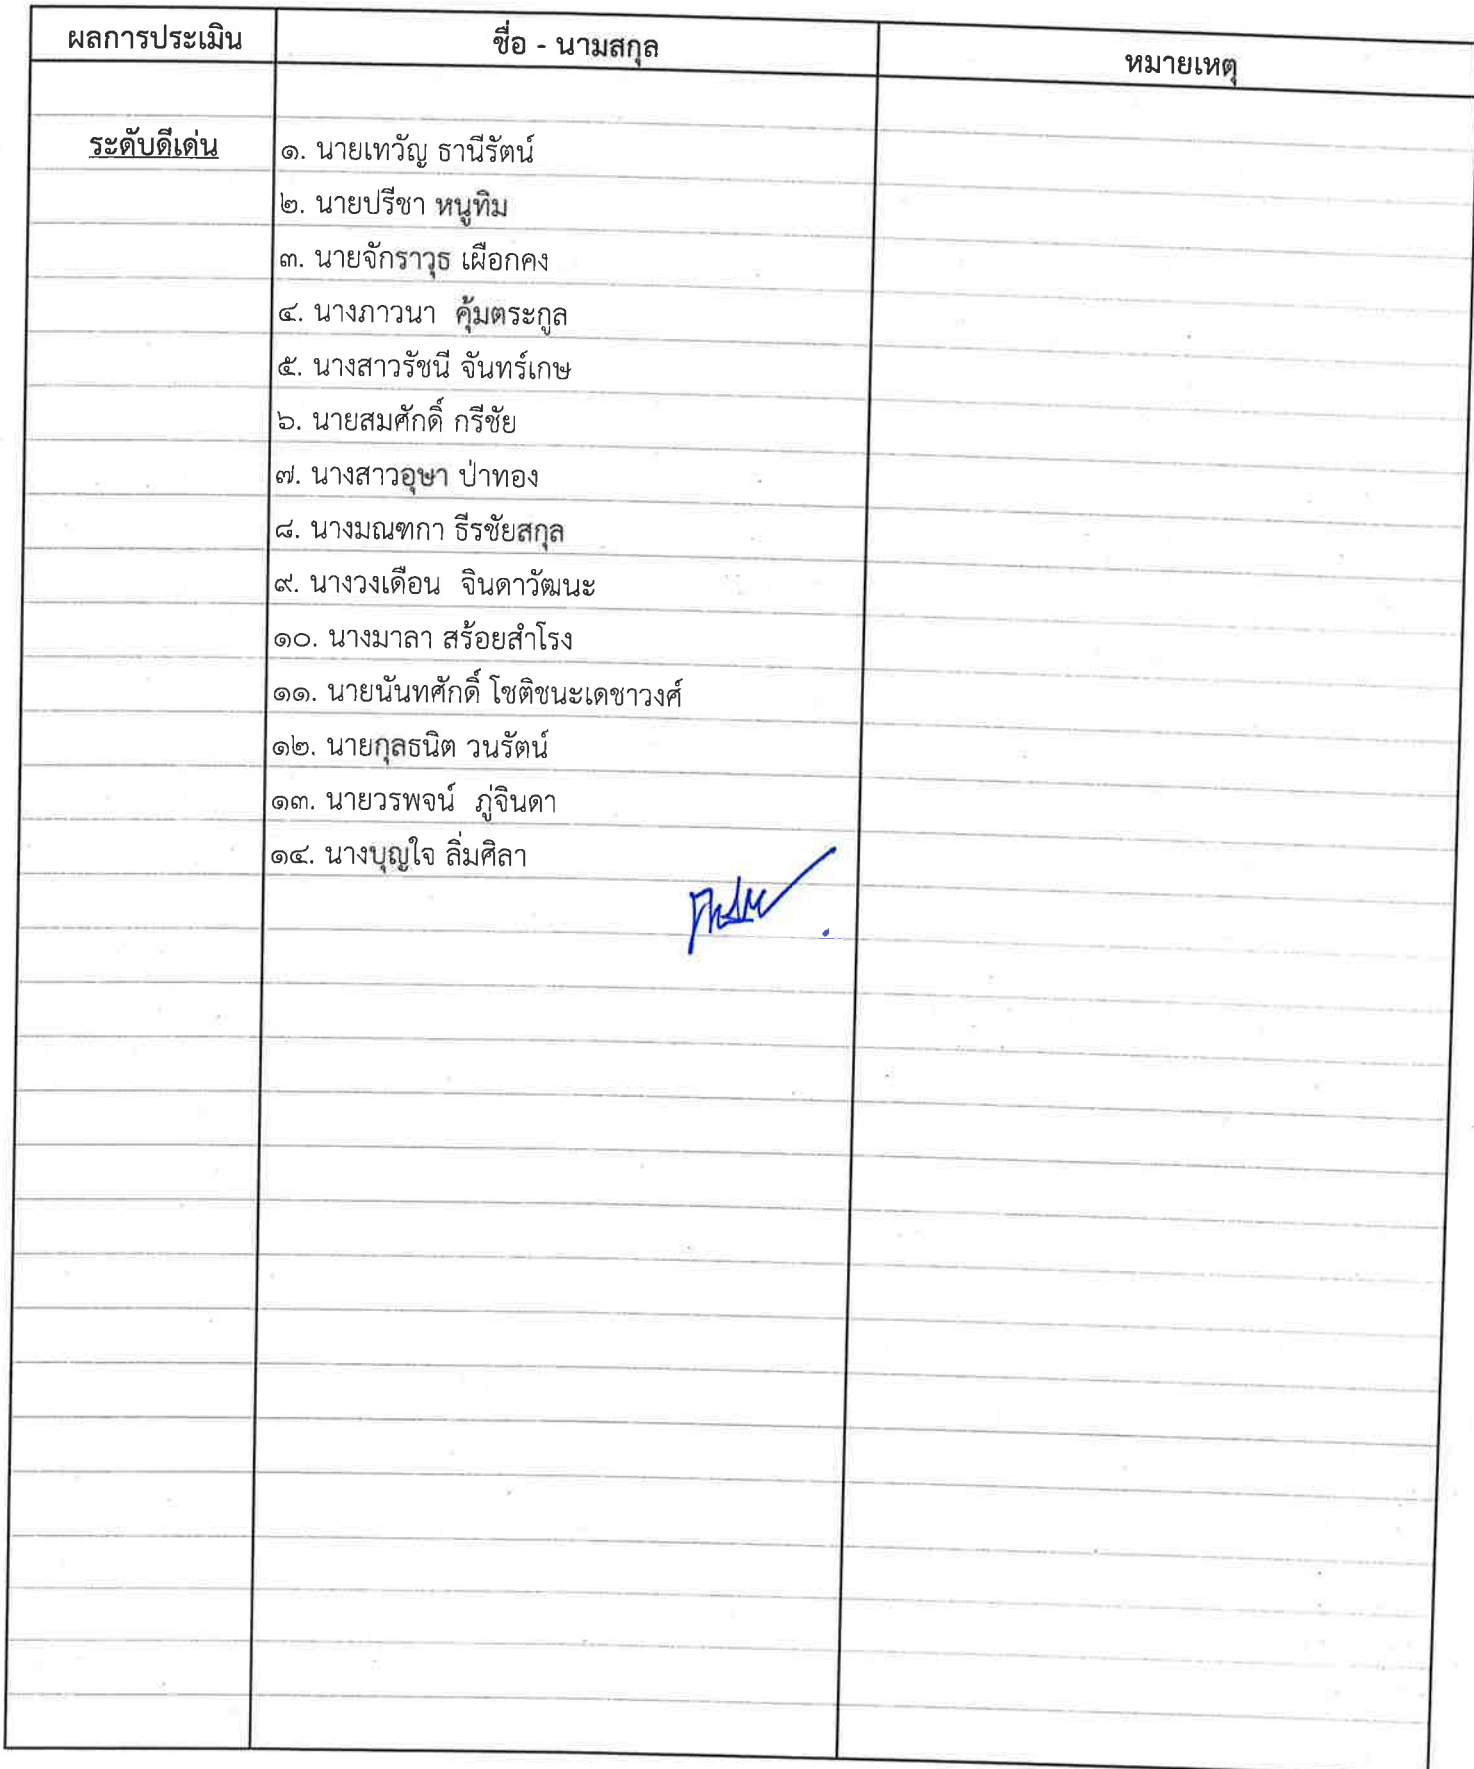 ผลการประเมิน ชื่อ - นามสกุล หมายเหตุ
ระดับดีเด่น ๑. นายเทวัญ ธานีรัตน์
๒. นายปรีชา หนูทิม
๓. นายจักราวุธ เผือกคง
๔. นางภาวนา คุ้มตระกูล
๕. นางสาวรัชนี จันทร์เกษ
๖. นายสมศักดิ์ กรีชัย
๗. นางสาวอุษา ป่าทอง
๘. นางมณฑกา ธีรชัยสกุล
๙. นางวงเดือน จินดาวัฒนะ
๑๐. นางมาลา สร้อยสำโรง
๑๑. นายนันทศักดิ์ โชติชนะเดชาวงศ์
๑๒. นายกุลธนิต วนรัตน์
๑๓. นายวรพจน์ ภู่จินดา
๑๔. นางบุญใจ ลิ่มศิลา